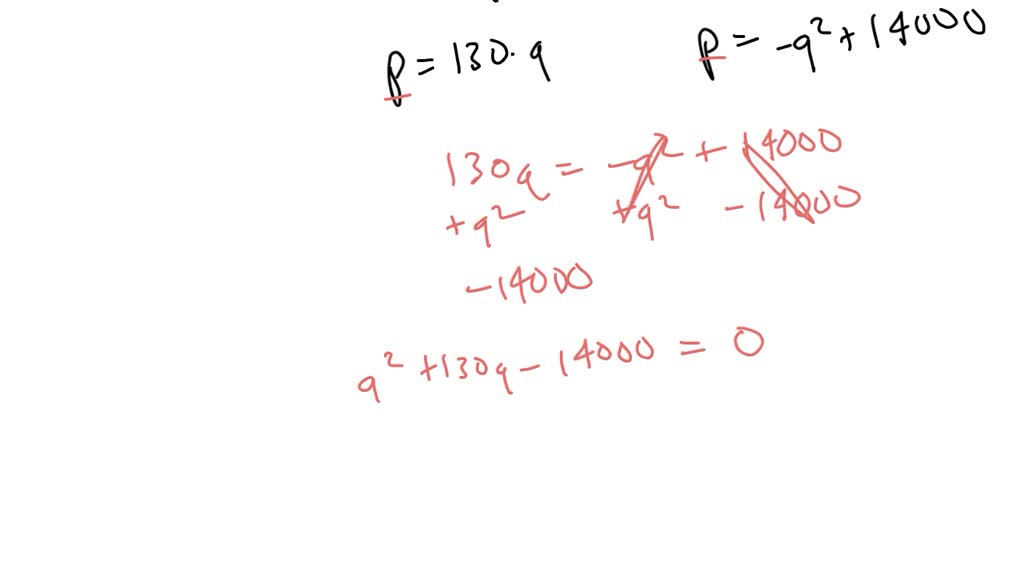 p = 130·q
p = -q² + 14000
130q = -q² + 14000
+q² +q² -14000
-14000
q² +130q - 14000 = 0